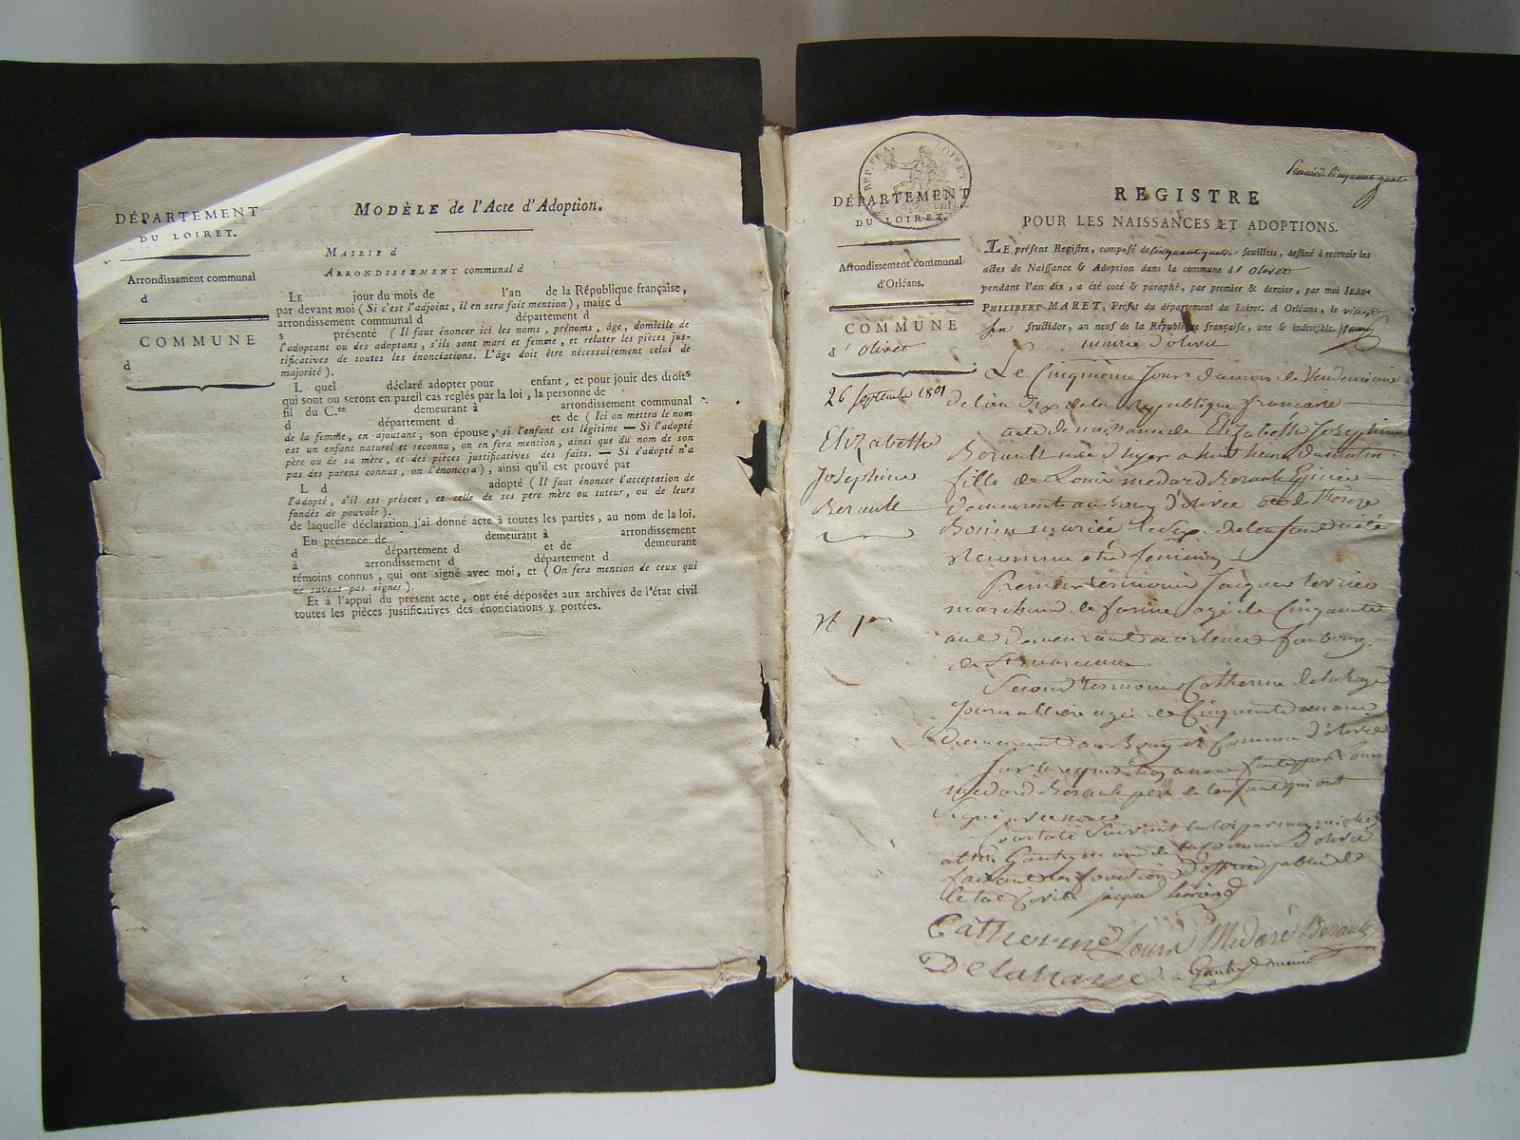 DÉPARTEMENT
DU LOIRET.
Arrondissement communal
d
COMMUNE
d
MODÈLE de l'Acte d'Adoption.
MAIRIE d
ARRONDISSEMENT communal d
LE jour du mois de l'an de la République française,
par devant moi ( Si c'est l'adjoint, il en sera fait mention ), maire d
arrondissement communal d département d
s présenté ( Il faut énoncer ici les noms, prénoms, âge, domicile de
l'adoptant ou des adoptans, s'ils sont mari et femme, et relater les pièces jus-
tificatives de toutes les énonciations. L'âge doit être nécessairement celui de
majorité ).
L quel déclaré adopter pour enfant, et pour jouir des droits
qui sont ou seront en pareil cas réglés par la loi, la personne de
fil du C.en demeurant à arrondissement communal
d département d et de ( Ici on mettra le nom
de la femme, en ajoutant, son épouse, si l'enfant est légitime — Si l'adopté
est un enfant naturel et reconnu, on en fera mention, ainsi que du nom de son
père ou de sa mère, et des pièces justificatives des faits. — Si l'adopté n'a
pas des parens connus, on l'énoncera ), ainsi qu'il est prouvé par
L d adopté ( Il faut énoncer l'acceptation de
l'adopté, s'il est présent, et celle de ses père mère ou tuteur, ou de leurs
fondés de pouvoirs ).
de laquelle déclaration j'ai donné acte à toutes les parties, au nom de la loi.
En présence de demeurant à arrondissement
d département d et de demeurant
à arrondissement d département d
témoins connus, qui ont signé avec moi, et ( On fera mention de ceux qui
ne savent pas signer ).
Et à l'appui du présent acte, ont été déposées aux archives de l'état civil
toutes les pièces justificatives des énonciations y portées.
DÉPARTEMENT
DU LOIRET.
Arrondissement communal
d'Orléans.
COMMUNE
d' Olivet
26 septembre 1801
Elizabethe
Josephine
Berault
N 1er
REGISTRE
POUR LES NAISSANCES ET ADOPTIONS.
LE présent Registre, composé de cinquante quatre feuillets, destiné à recevoir les
actes de Naissance & Adoption dans la commune d' Olivet
pendant l'an dix, a été coté & paraphé, par premier & dernier, par moi JEAN-
PHILIBERT MARET, Préfet du département du Loiret. A Orléans, le vingt
fructidor, an neuf de la République française, une & indivisible.
mairie d'olivet
Le Cinquieme jour du mois de Vendemiaire
de l'an Dix de la Republique francaise
acte de naissance de Elizabethe Josephine
Berault née d'hyer a huit heure du matin
fille de Louis medard Berault Epicier
demeurant au Bourg d'olivet et de Therese
Bonin mariée le sex de l'enfant a été
Reconnu etre feminin
Premier temoin Jacque
marchand de farine agé de Cinquante
ans demeurant a orleans faubourg
de St marceau
Second temoin Catherine Delahaye
Journalliere agée de Cinquante ans
demeurant au Bourg et Commune d'olivet
Sur la requisition a nous faite par Louis
medard Berault pere de l'enfant qui ont
signé
Constaté Suivant la loi par moi
maire de la Commune d'olivet
faisant les fonction d'officier public de
letat Civil
Catherine Louis Medard Berault
Delahaye